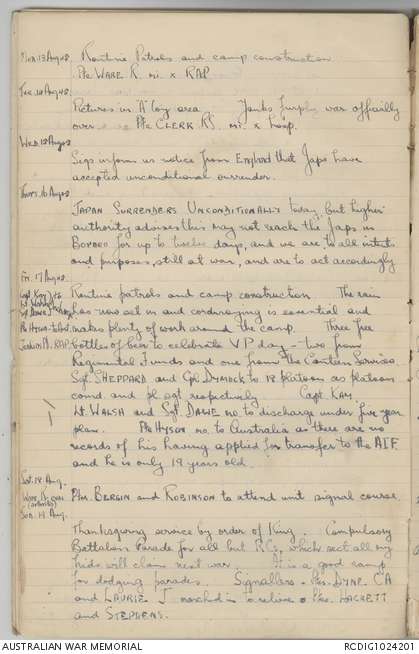 Mon. 13 Aug 45 Routine Patrols and camp construction
Pte WARE R. mi. x RAP
Tue. 14 Aug 45
Pictures in 'A' Coy area. Yanks furphy war officially
over. Pte CLERK RJ. mi. x hosp.
Wed 15 Aug 45
Sigs inform us notice from England that Japs have
accepted unconditional surrender.
Thurs. 16 Aug 45
JAPAN SURRENDERS UNCONDITIONALLY today, but higher
authority advises this may not reach the Japs in
BORNEO for up to twelve days, and we are to all intents
and purposes, still at war, and are to act accordingly
Fri. 17 Aug 45
Routine patrols and camp construction The rain
has now set in and corduroying is essential and
makes plenty of work around the camp. Three free
bottles of beer to celebrate V P day - two from
Regimental Funds and one from the Canteen Service.
Sgt. SHEPPARD and Cpl DYMOCK to 18 platoon as platoon
comd and pl sgt respectively. Capt KAY,
Lt WALSH and Sgt DAWE mo. to discharge under five year
plan. Pte HYSON mo. to Australia as there are no
records of his having applied for transfer to the AIF
and he is only 19 years old.
Sat. 18 Aug.
Ptes. BERGIN and ROBINSON to attend unit signal course
Sun. 19 Aug.
Thanksgiving service by order of King. Compulsory
Battalion Parade for all but R.Cs, which sect all my
kids will claim next war. It is a good camp
for dodging parades. Signallers - Ptes. DYNE CA
and LAURIE J marched in to relieve Ptes. HACKETT
and STEPHENS.
AUSTRALIAN WAR MEMORIAL
RCDIG1024201